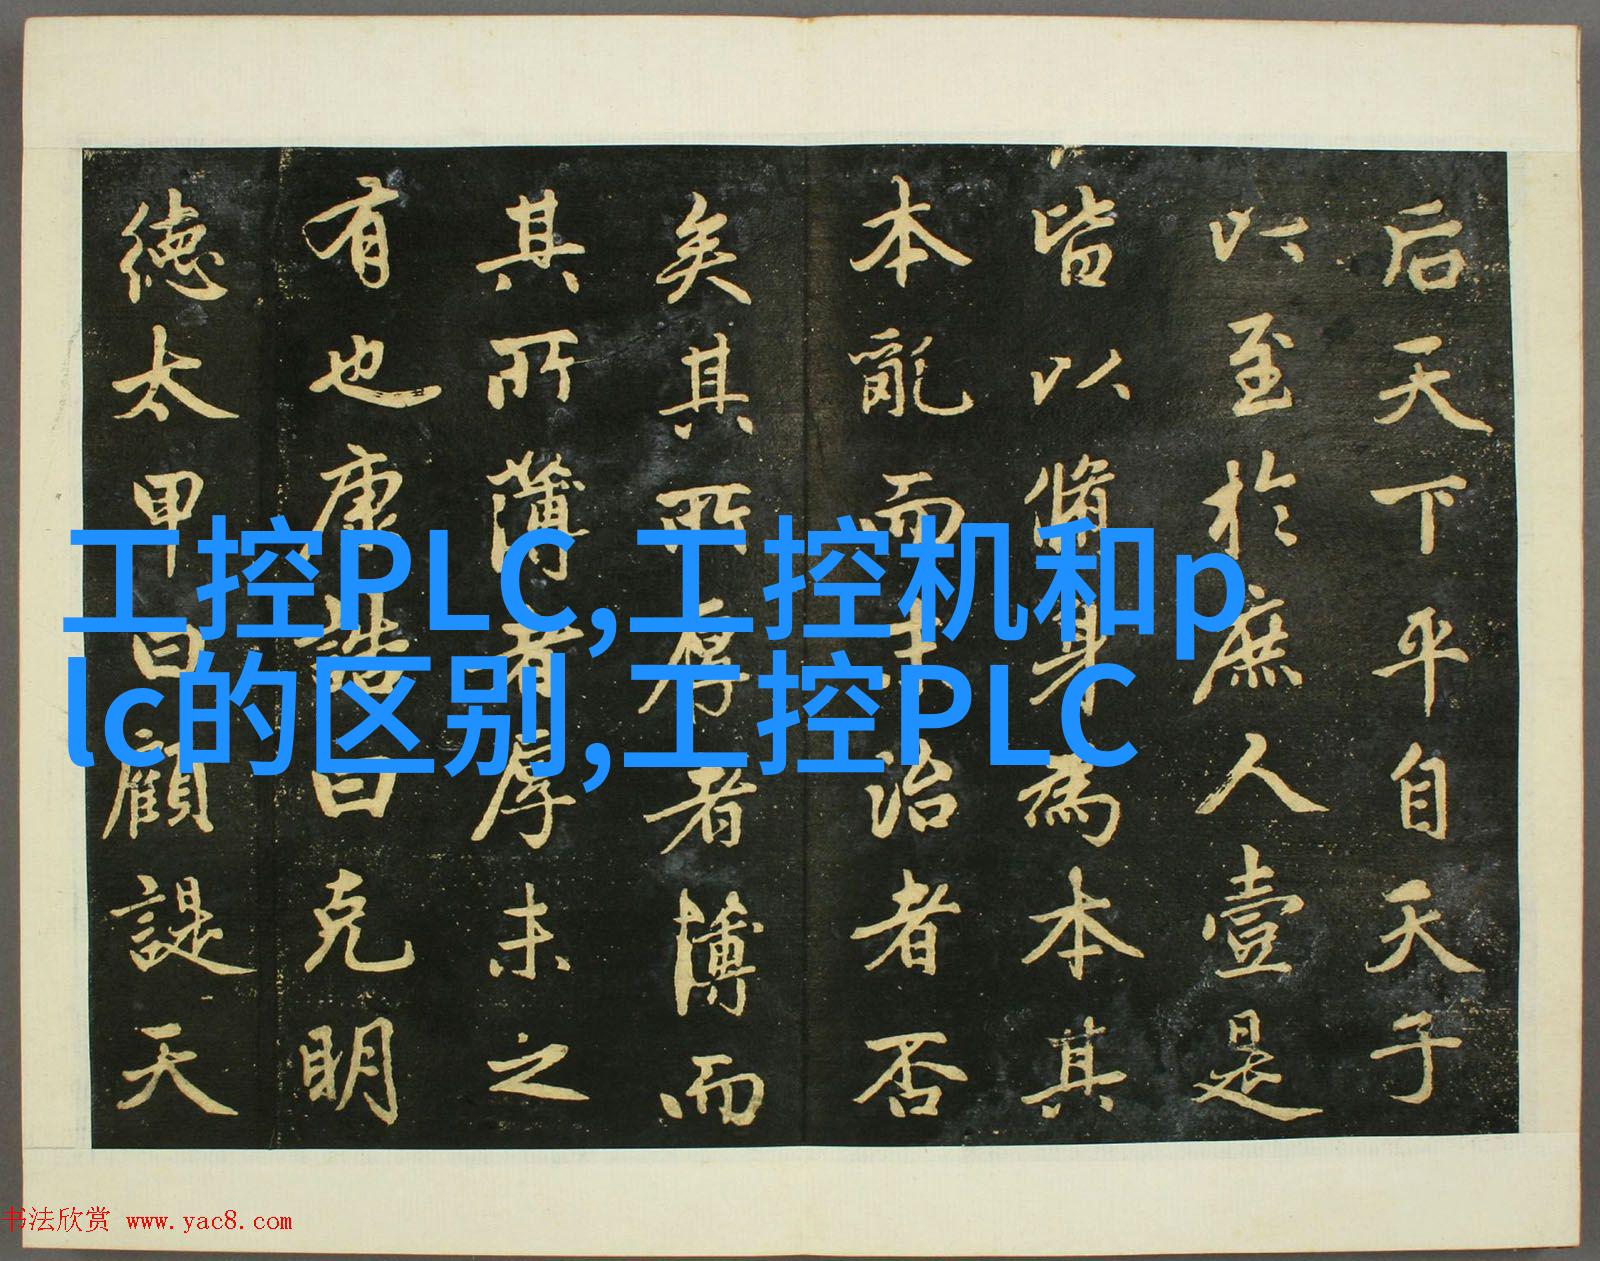 后天下平自天子
以至於庶人壹是
皆以脩身為本其
本亂而末治者否
矣其所厚者薄而
其所薄者厚未之
有也康誥曰克明
德太甲曰顧諟天
工控PLC,工控机和p
lc的区别,工控PLC
书法欣赏 www.yac8.com